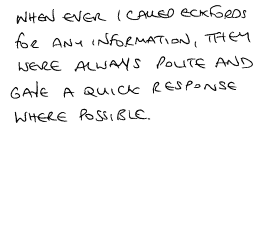 WHEN EVER I CALLED ECKFORDS
FOR ANY INFORMATION, THEY
WERE ALWAYS POLITE AND
GAVE A QUICK RESPONSE
WHERE POSSIBLE.